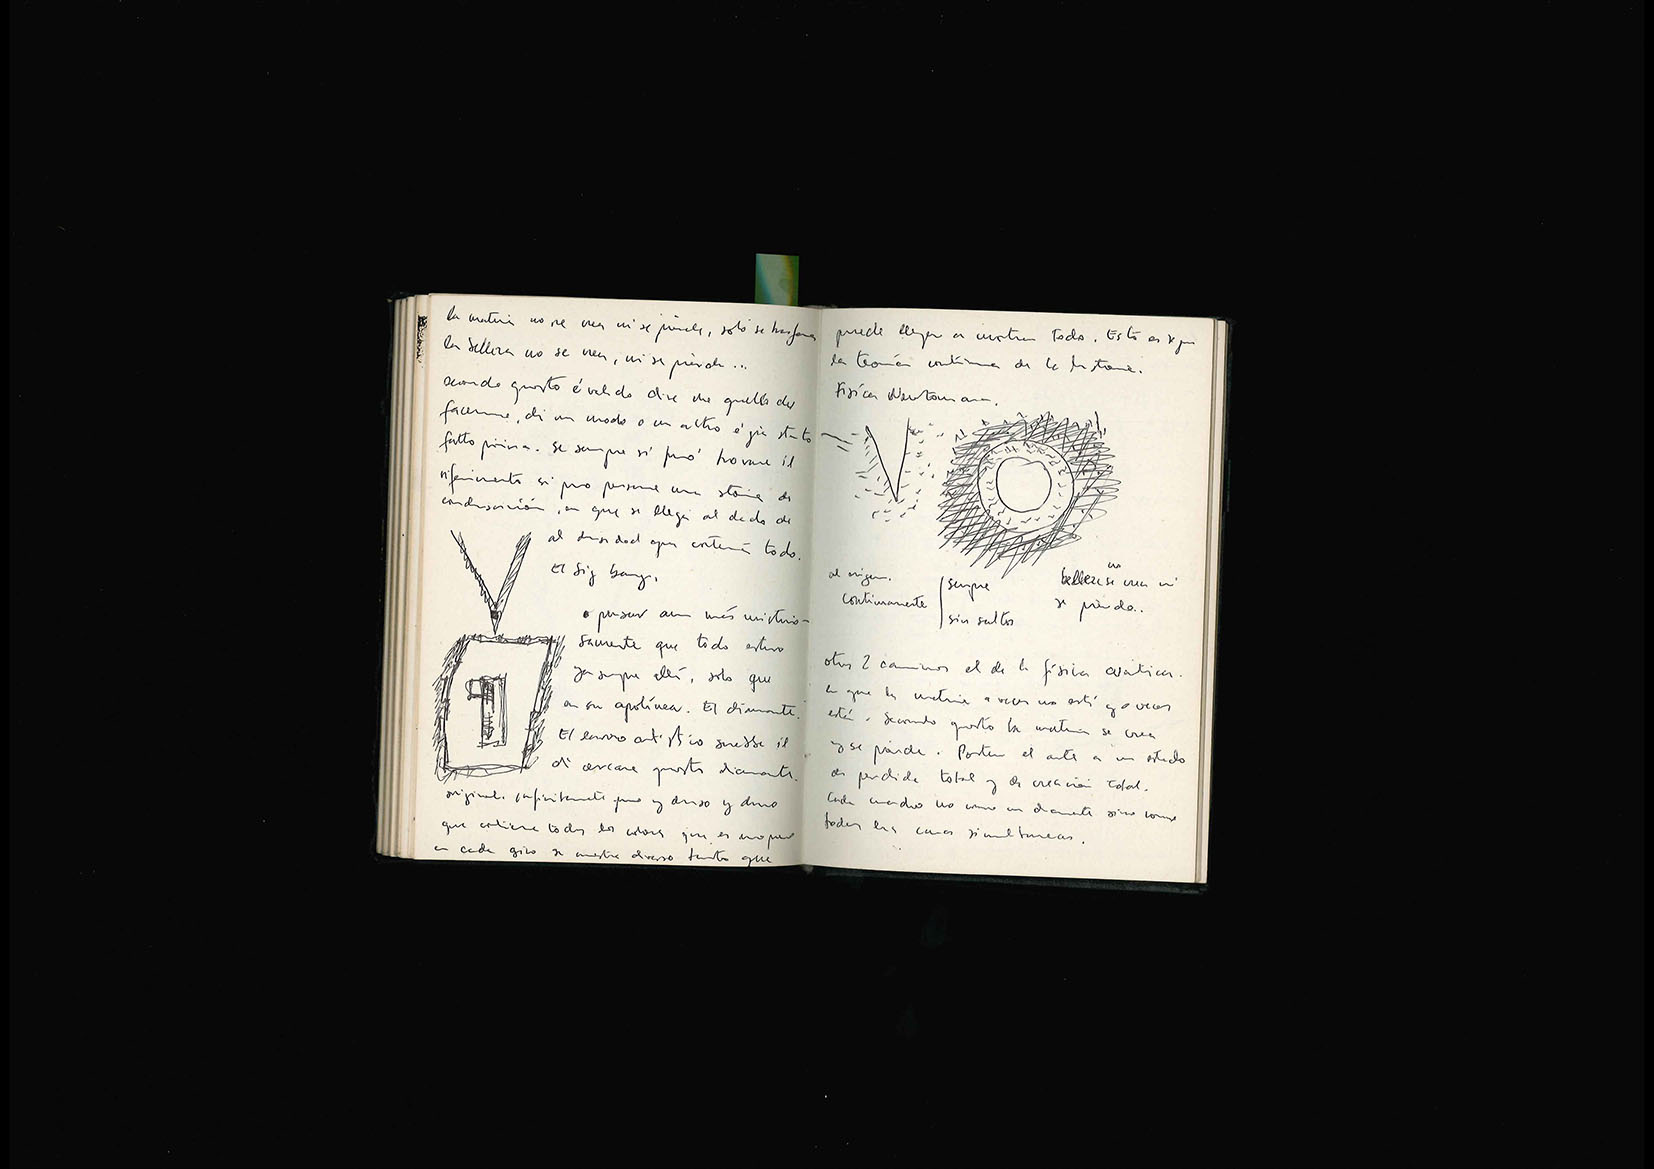 la materia no se crea ni se pierde, solo se trasforma
la belleza no se crea, ni se pierde...
secondo questo é valido dire che quello che
facciamo, di un modo o un altro é già stato
fatto prima. Se sempre si può trovare il
riferimento si può pensare una storia de
condensación, en que se llega al dado de
al densidad que contenía todo.
El big bang.
o pensar aun más misterio-
samente que todo estuvo
ya siempre allí, solo que
El diamante.
El lavoro artistico sarebbe il
di cercare questo diamante
originale infinitamente puro y denso y duro
que contiene todos los colores que es
en cada giro se muestra diverso tanto que
puede llegar a mostrar todo. Esto es según
la teoría continua de la historia.
Física Newtoniana.
al origen.
continuamente
siempre
sin saltos
no
belleza se crea ni
se pierde..
otros 2 caminos el de la física cuántica.
en que la materia a veces no está y a veces
está. Secondo questo la materia se crea
y se pierde. Portar el arte a un estado
de perdida total y de creación total.
Cada cuadro no como un diamante sino como
todas las caras simultaneas.